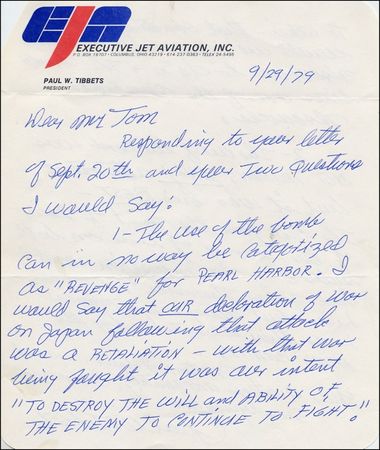 EJA
EXECUTIVE JET AVIATION, INC.
P.O. BOX 19707 • COLUMBUS, OHIO 43219 • 614-237-0363 • TELEX 24-5495
PAUL W. TIBBETS
PRESIDENT
9/29/79
Dear Mr Tom
Responding to your letter
of Sept. 20th and your Two Questions
I would Say:
1 - The use of the bomb
Can in no way be Catagorized
as "REVENGE" for PEARL HARBOR. I
would Say that OUR declaration of war
on Japan following that attack
was a RETALIATION - with that war
being fought it was our intent
"TO DESTROY THE WILL and ABILITY OF
THE ENEMY TO CONTINUE TO FIGHT."